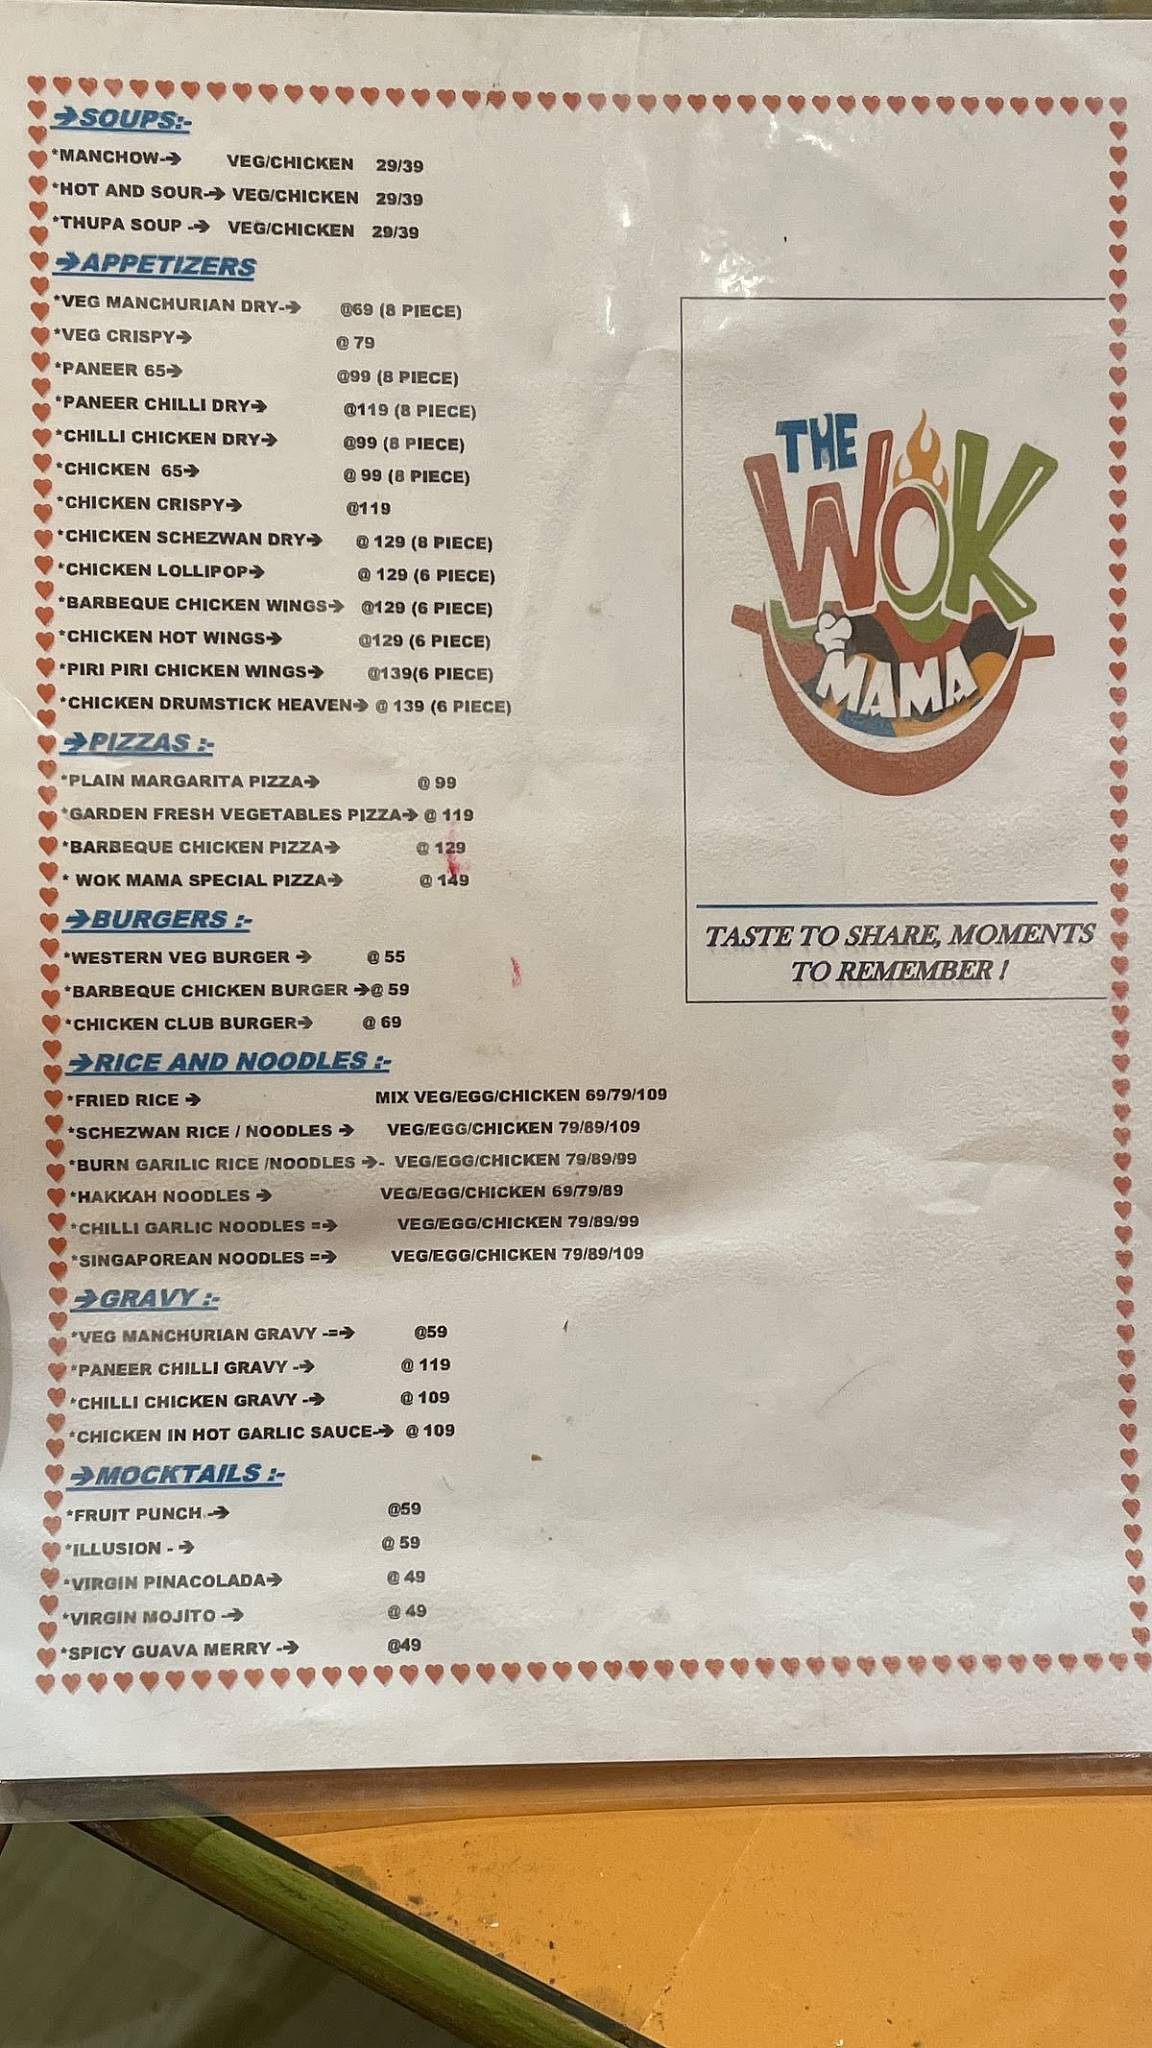 ➔SOUPS:-
*MANCHOW-➔ VEG/CHICKEN 29/39
*HOT AND SOUR-➔ VEG/CHICKEN 29/39
*THUPA SOUP -➔ VEG/CHICKEN 29/39
➔APPETIZERS
*VEG MANCHURIAN DRY-➔ @69 (8 PIECE)
*VEG CRISPY➔ @ 79
*PANEER 65➔ @99 (8 PIECE)
*PANEER CHILLI DRY➔ @119 (8 PIECE)
*CHILLI CHICKEN DRY➔ @99 (8 PIECE)
*CHICKEN 65➔ @ 99 (8 PIECE)
*CHICKEN CRISPY➔ @119
*CHICKEN SCHEZWAN DRY➔ @ 129 (8 PIECE)
*CHICKEN LOLLIPOP➔ @ 129 (6 PIECE)
*BARBEQUE CHICKEN WINGS➔ @129 (6 PIECE)
*CHICKEN HOT WINGS➔ @129 (6 PIECE)
*PIRI PIRI CHICKEN WINGS➔ @139(6 PIECE)
*CHICKEN DRUMSTICK HEAVEN➔ @ 139 (6 PIECE)
➔PIZZAS :-
*PLAIN MARGARITA PIZZA➔ @ 99
*GARDEN FRESH VEGETABLES PIZZA➔ @ 119
*BARBEQUE CHICKEN PIZZA➔ @ 129
* WOK MAMA SPECIAL PIZZA➔ @ 149
➔BURGERS :-
*WESTERN VEG BURGER ➔ @ 55
*BARBEQUE CHICKEN BURGER ➔@ 59
*CHICKEN CLUB BURGER➔ @ 69
➔RICE AND NOODLES :-
*FRIED RICE ➔ MIX VEG/EGG/CHICKEN 69/79/109
*SCHEZWAN RICE / NOODLES ➔ VEG/EGG/CHICKEN 79/89/109
*BURN GARILIC RICE /NOODLES ➔- VEG/EGG/CHICKEN 79/89/99
*HAKKAH NOODLES ➔ VEG/EGG/CHICKEN 69/79/89
*CHILLI GARLIC NOODLES =➔ VEG/EGG/CHICKEN 79/89/99
*SINGAPOREAN NOODLES =➔ VEG/EGG/CHICKEN 79/89/109
➔GRAVY :-
*VEG MANCHURIAN GRAVY -=➔ @59
*PANEER CHILLI GRAVY -➔ @ 119
*CHILLI CHICKEN GRAVY -➔ @ 109
*CHICKEN IN HOT GARLIC SAUCE-➔ @ 109
➔MOCKTAILS :-
*FRUIT PUNCH -➔ @59
*ILLUSION - ➔ @ 59
*VIRGIN PINACOLADA➔ @ 49
*VIRGIN MOJITO -➔ @ 49
*SPICY GUAVA MERRY -➔ @49
THE
WOK
MAMA
TASTE TO SHARE, MOMENTS
TO REMEMBER !